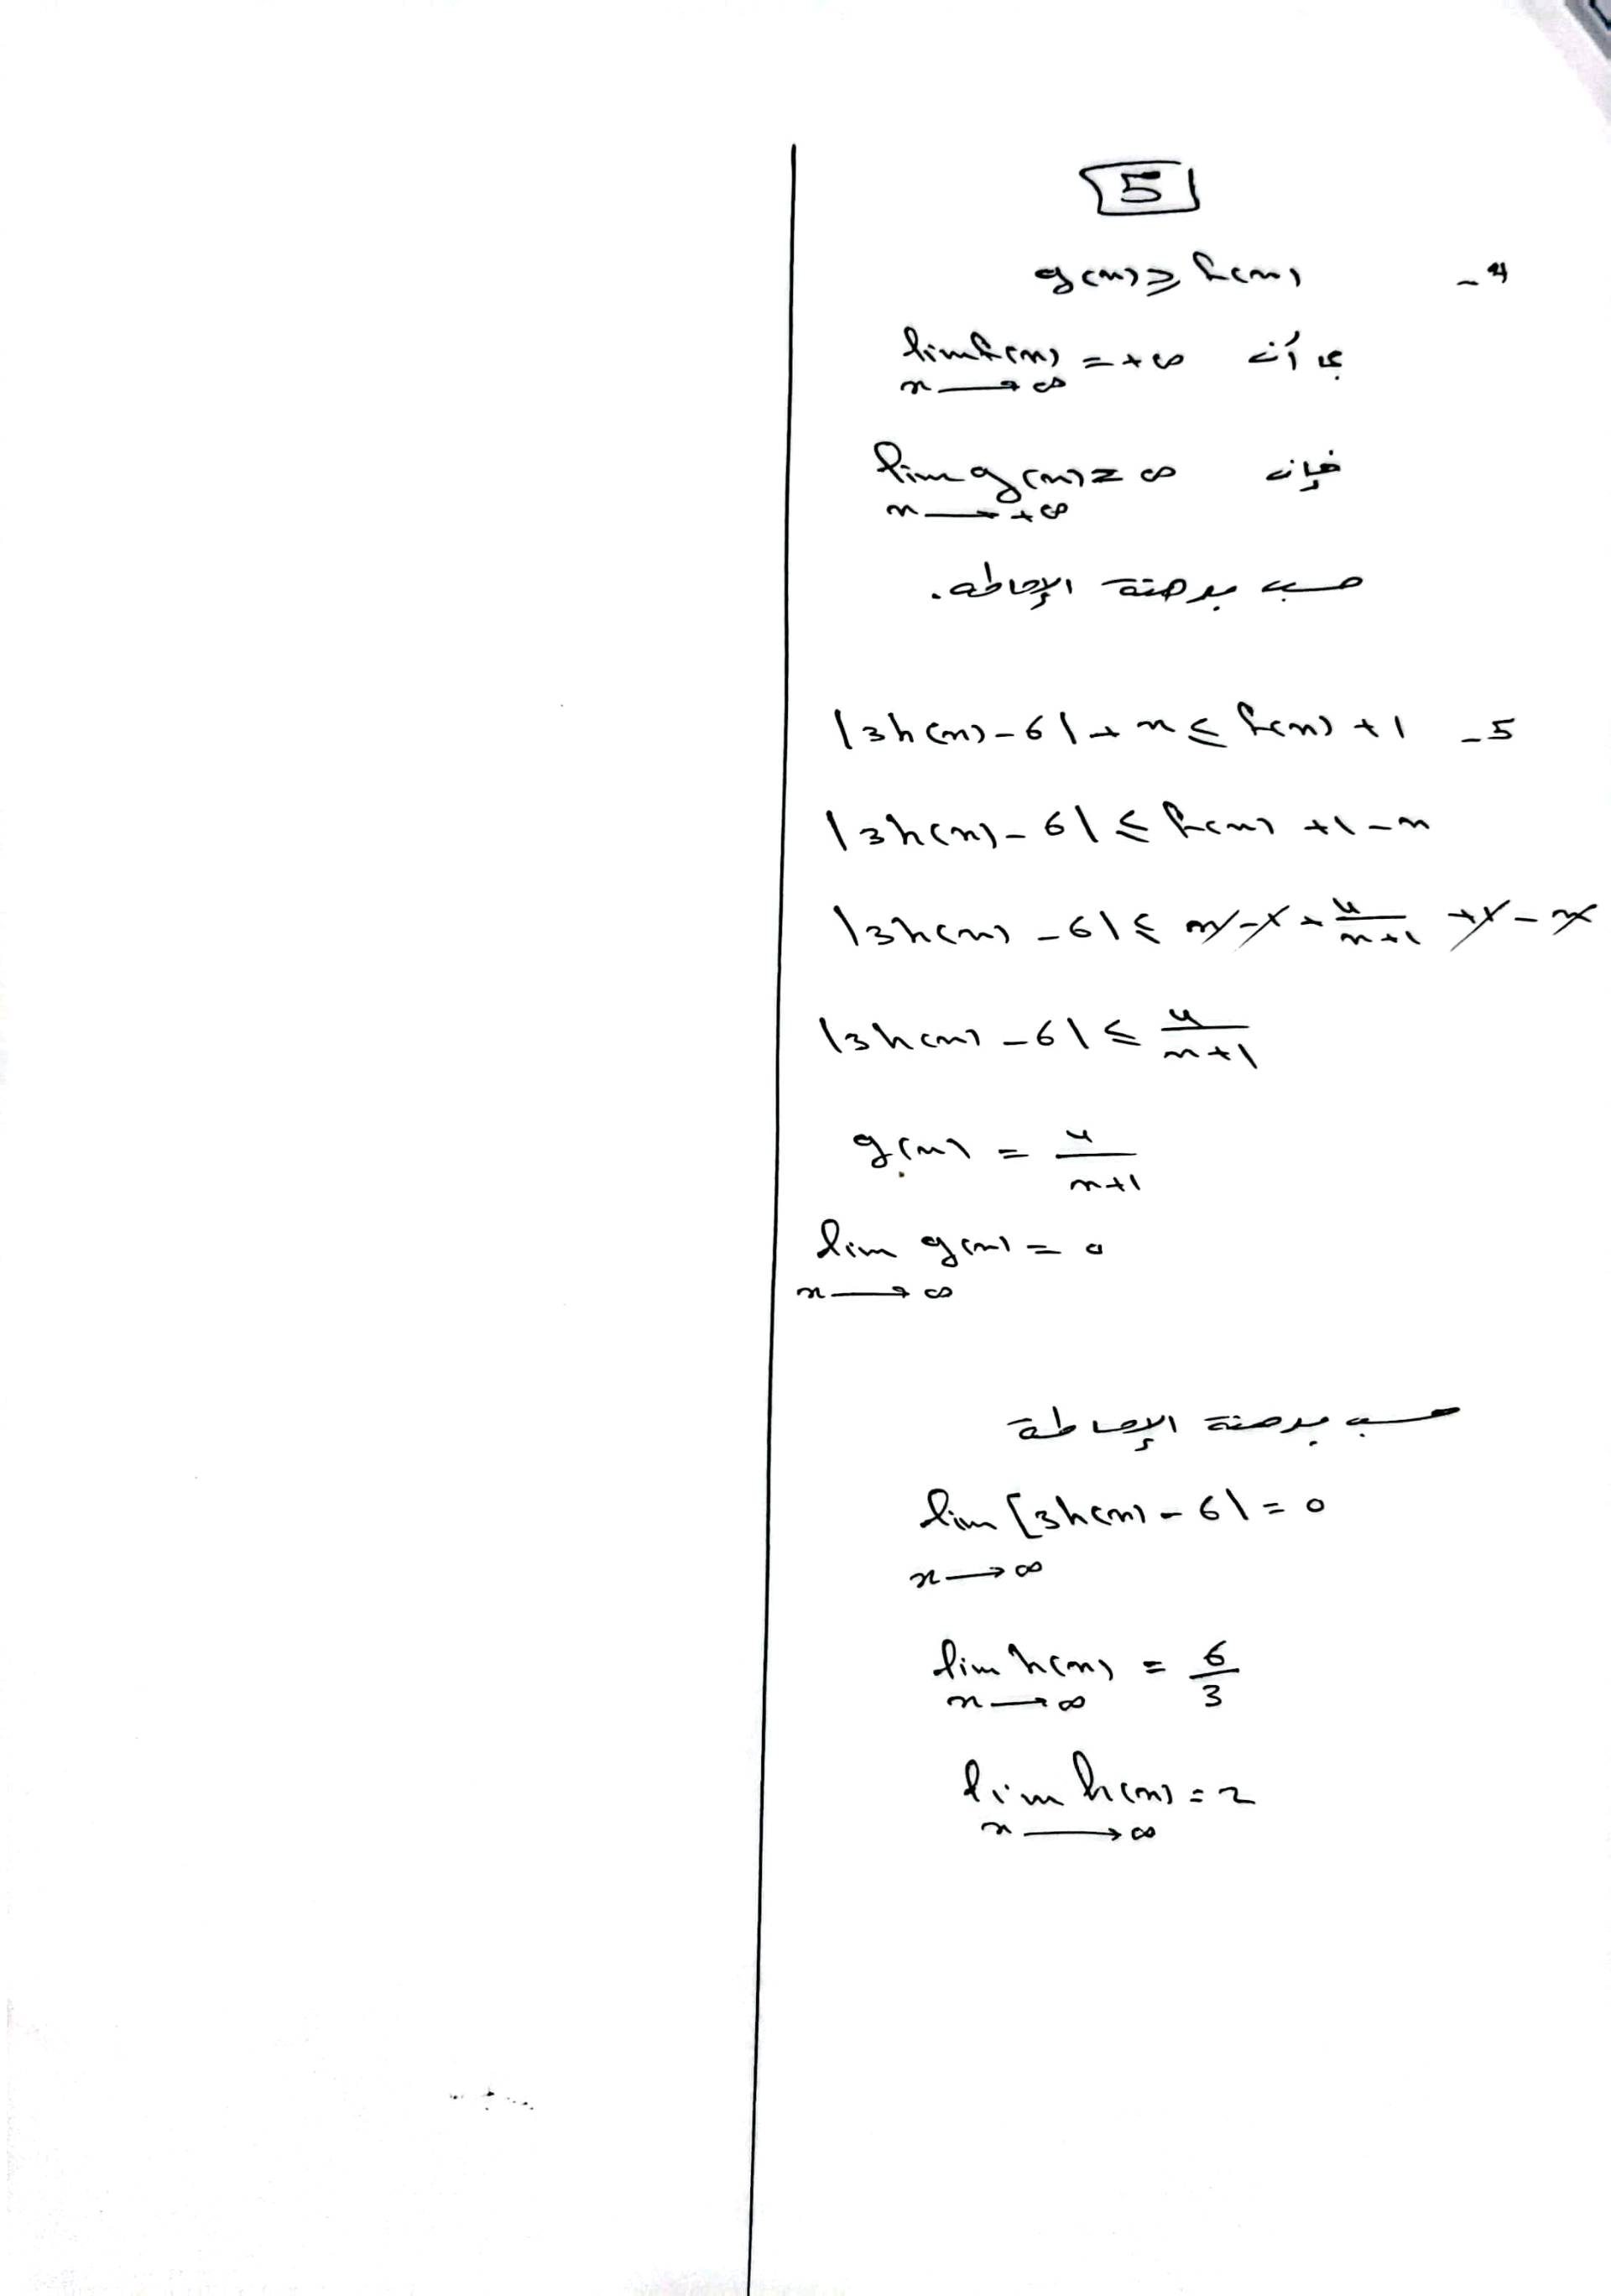 5
4- g(x) ≥ f(x)
بما أن lim f(x) = +∞
x → ∞
فإن lim g(x) = ∞
x → +∞
حسب مبرهنة الإحاطة.
5- |3h(x) - 6| + x ≤ f(x) + 1
|3h(x) - 6| ≤ f(x) + 1 - x
|3h(x) - 6| ≤ x - 1 + 4/(x+1) + 1 - x
|3h(x) - 6| ≤ 4/(x+1)
g(x) = 4/(x+1)
lim g(x) = 0
x → ∞
حسب مبرهنة الإحاطة
lim |3h(x) - 6| = 0
x → ∞
lim h(x) = 6/3
x → ∞
lim h(x) = 2
x → ∞